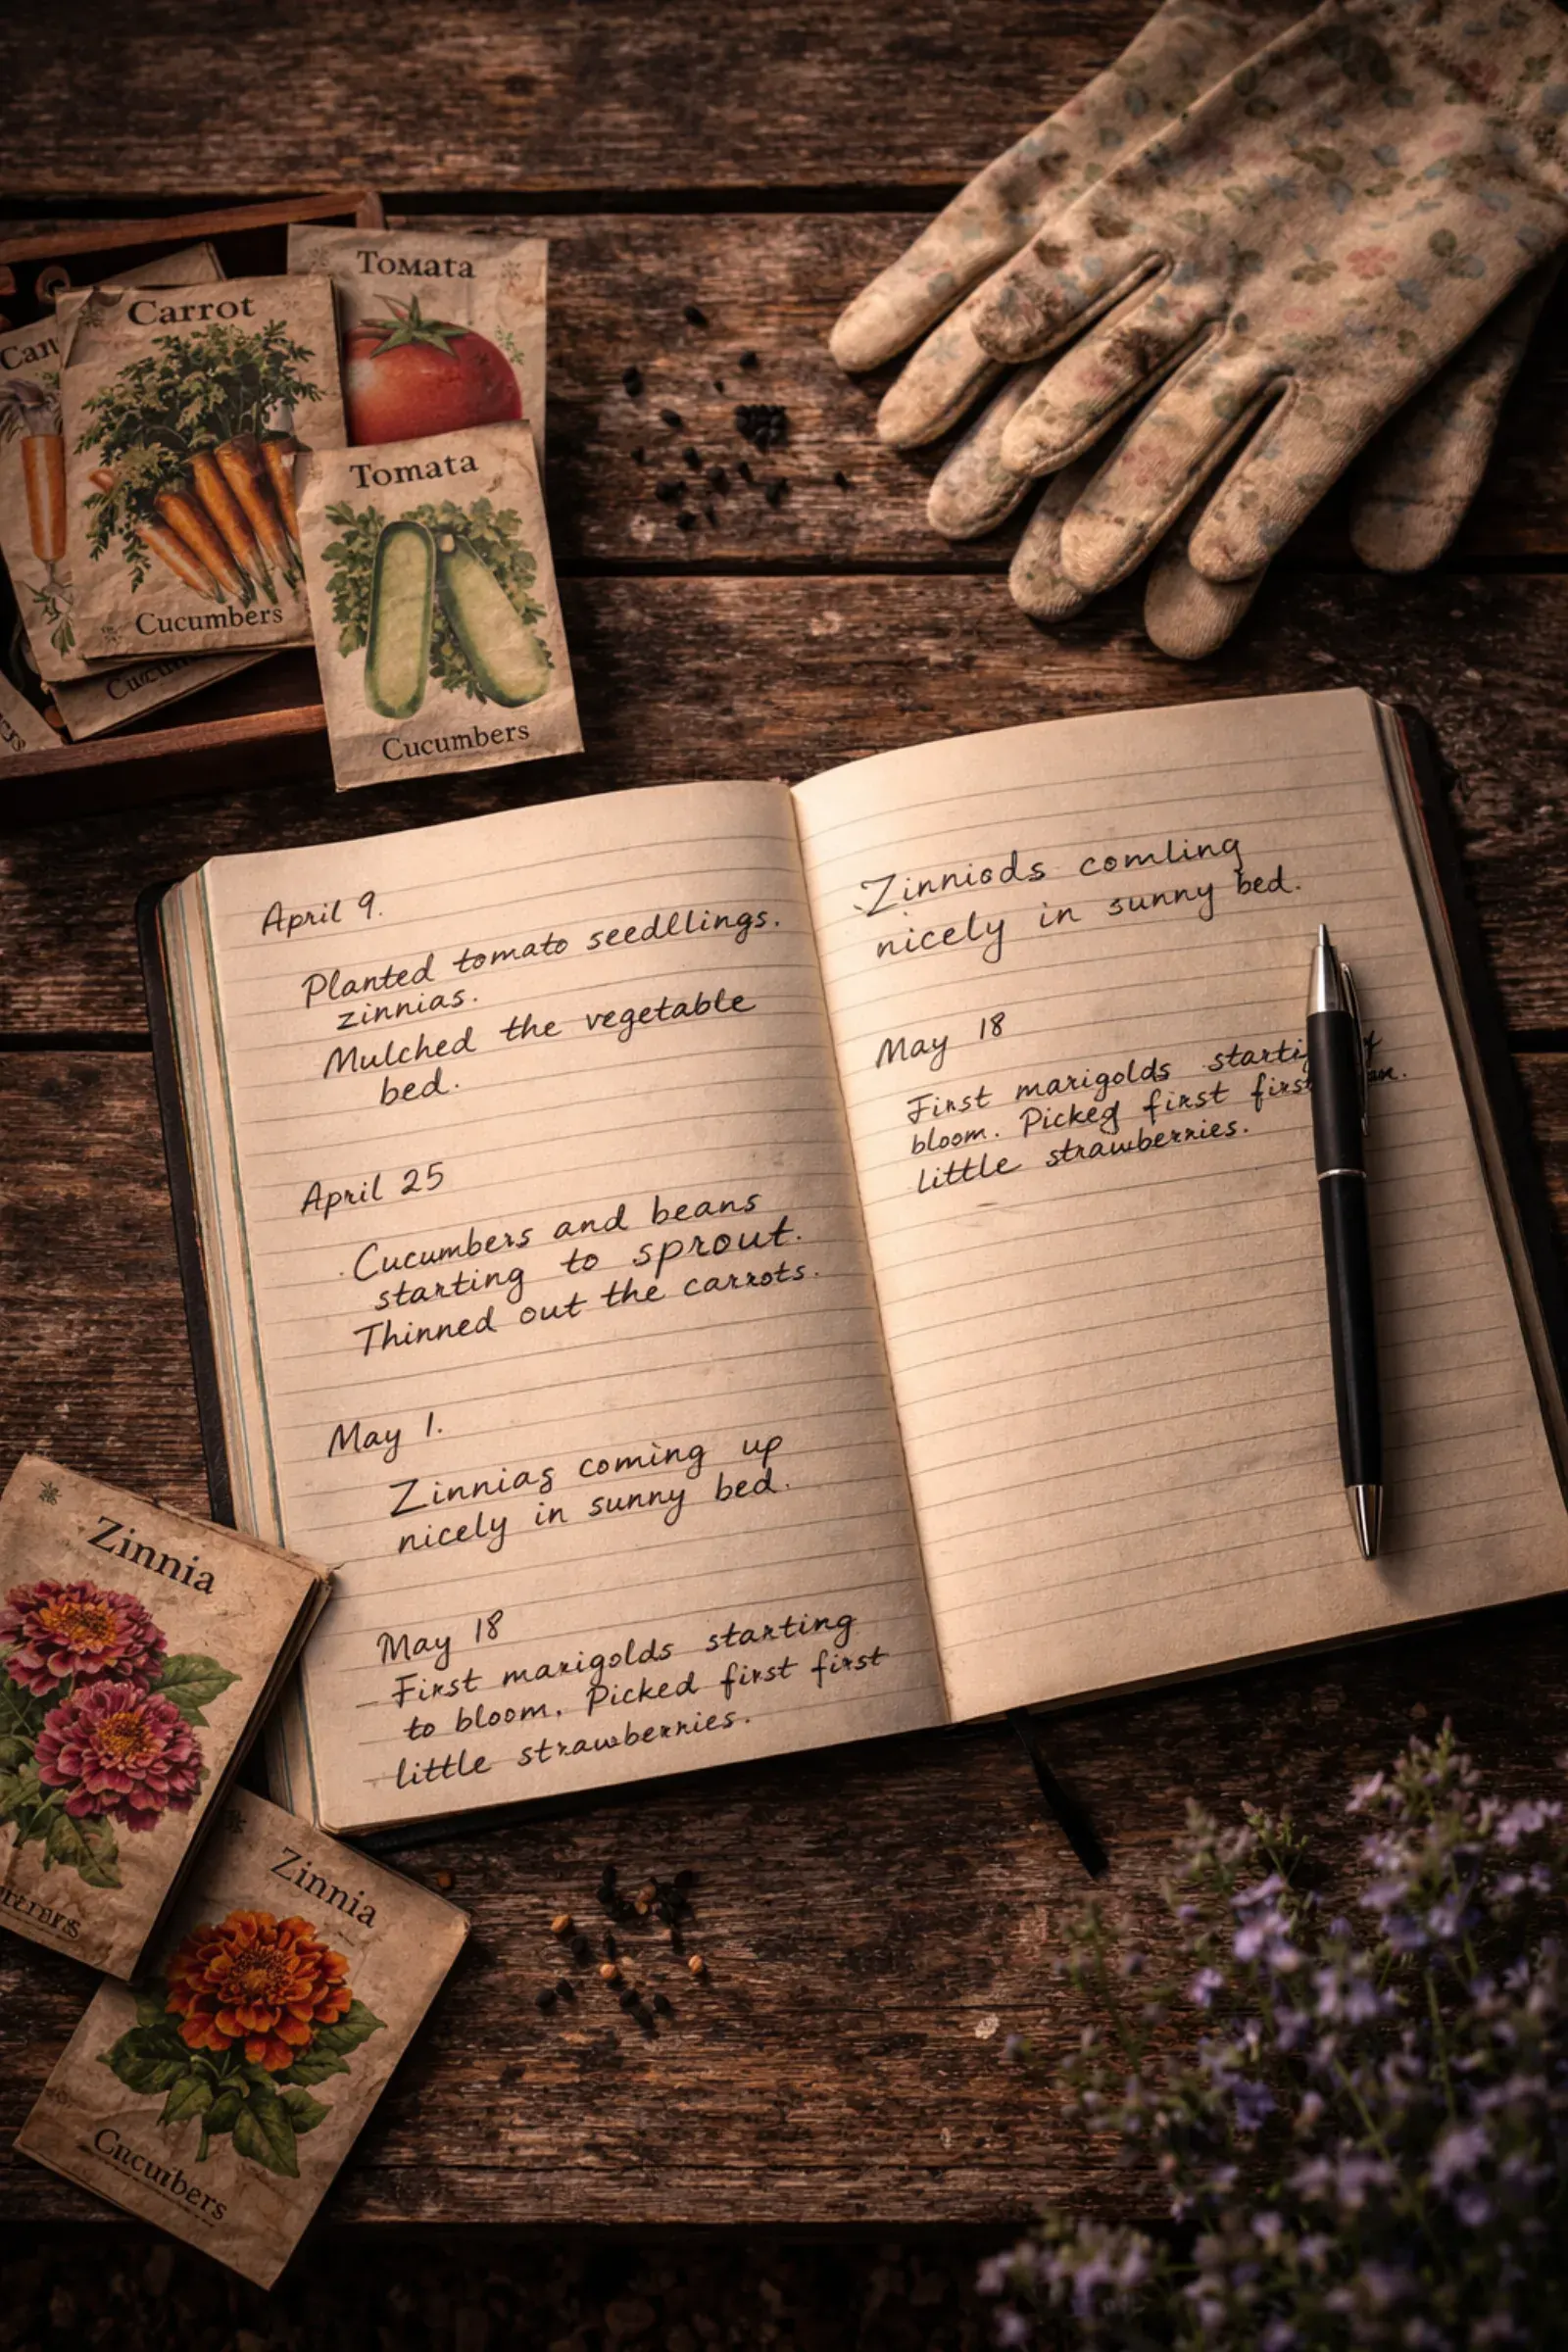 Tomata
Carrot
Can
Tomata
Cucumbers
Cucumbers
April 9.
Planted tomato seedllings.
zinnias.
Mulched the vegetable
bed.
April 25
Cucumbers and beans
starting to sprout.
Thinned out the carrots.
May 1.
Zinnias coming up
nicely in sunny bed.
May 18
First marigolds starting
to bloom. Picked first first
little strawberries.
Zinniods comling
nicely in sunny bed.
May 18
First marigolds
bloom. Picked first
little strawberries.
Zinnia
Zinnia
Cucuibers